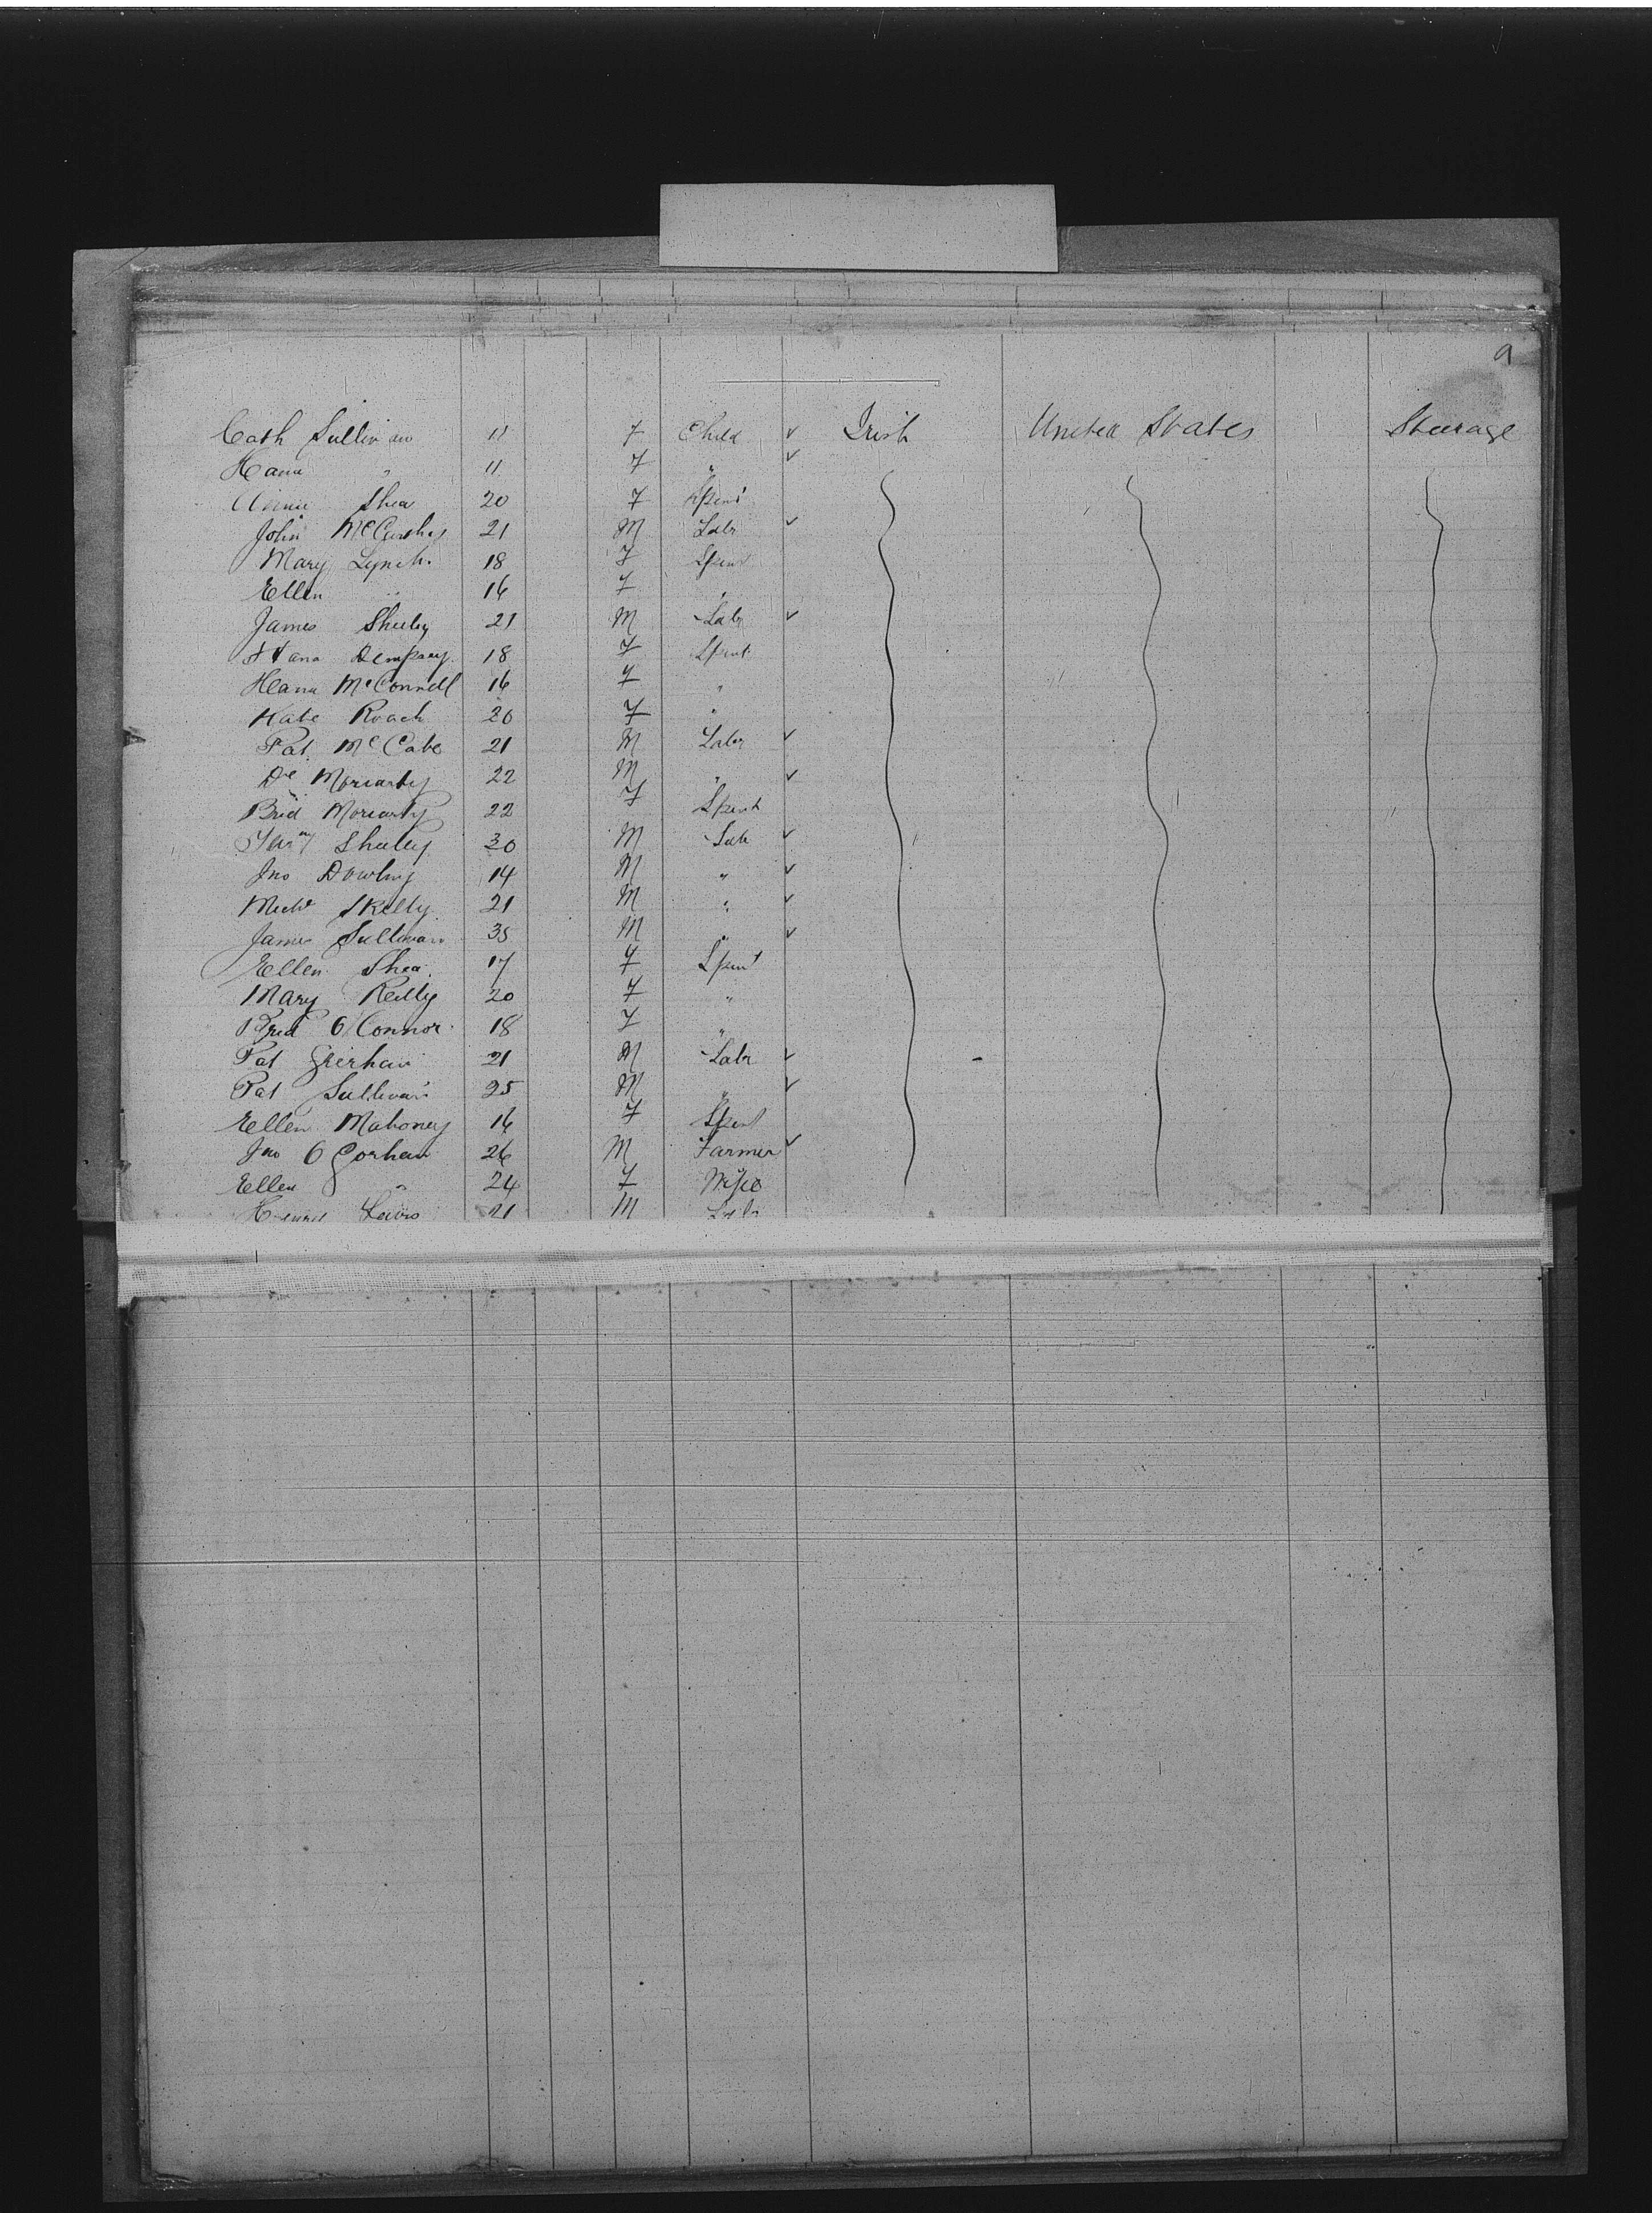 9
Cath Sullivan 11 F Child ✓ Irish United States Steerage
Hana " 11 F " ✓
Annie Shea 20 F Spinst
John McCarthy 21 M Labr ✓
Mary Lynch 18 F Spins
Ellen " 16 F "
James Sheehy 21 M Labr ✓
Hana Dempsey 18 F Spinst
Hana McConnell 16 F "
Kate Roach 20 F "
Pat McCabe 21 M Labr ✓
Moriarty 22 M " ✓
Brid Moriarty 22 F Spinst
Sheehy 30 M Lab ✓
Jno Dowling 14 M " ✓
Michl Skelly 21 M " ✓
James Sullivan 35 M " ✓
Ellen Shea 17 F Spinst
Mary Reilly 20 F "
Brid O'Connor 18 F "
Pat 21 M Labr ✓
Pat Sullivan 25 M " ✓
Ellen Mahoney 16 F Spinst
Jno O Gorhan 26 M Farmer ✓
Ellen " 24 F Wife
Lewis 21 M Labr